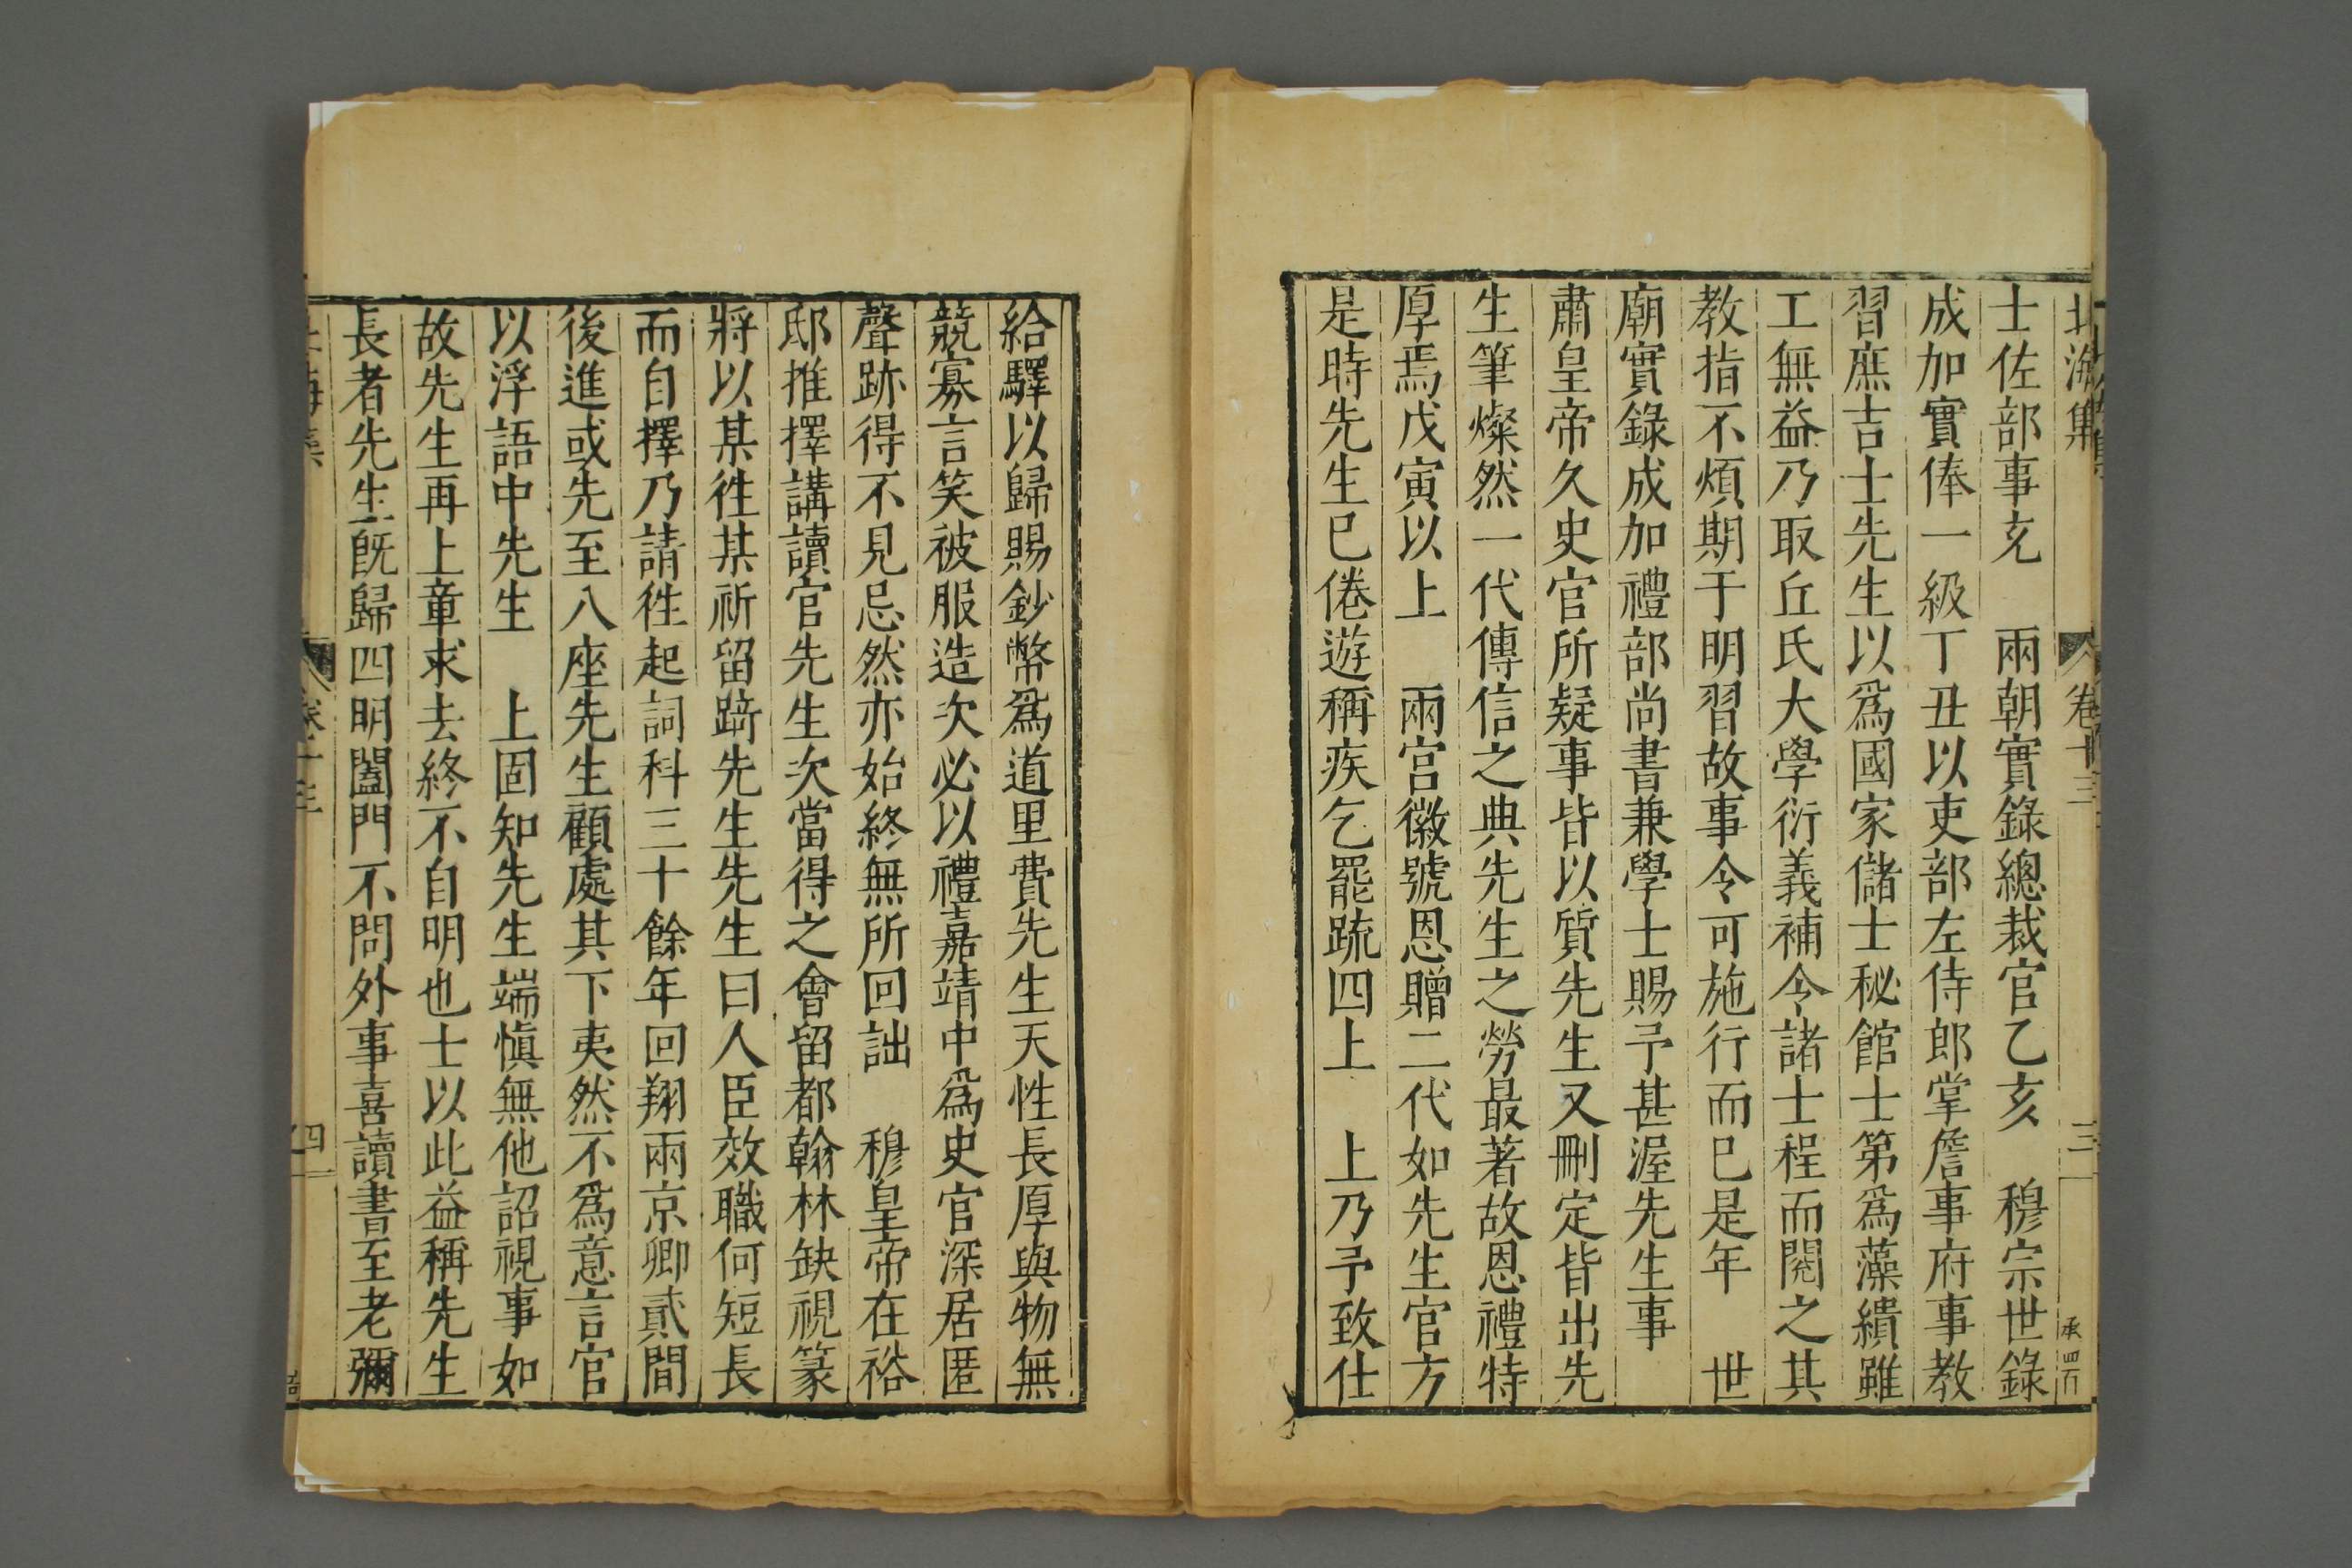 北海集 卷十三 三 承 四百
士佐部事充 兩朝實錄總裁官乙亥 穆宗世錄
成加實俸一級丁丑以吏部左侍郎掌詹事府事教
習庶吉士先生以爲國家儲士秘館士第爲藻繢雖
工無益乃取丘氏大學衍義補令諸士程而閱之其
教指不煩期于明習故事令可施行而已是年 世
廟實錄成加禮部尚書兼學士賜予甚渥先生事
肅皇帝久史官所疑事皆以質先生又刪定皆出先
生筆燦然一代傳信之典先生之勞最著故恩禮特
厚焉戊寅以上 兩宮徽號恩贈二代如先生官方
是時先生已倦遊稱疾乞罷疏四上 上乃予致仕
給驛以歸賜鈔幣爲道里費先生天性長厚與物無
競寡言笑被服造次必以禮嘉靖中爲史官深居匿
聲跡得不見忌然亦始終無所回詘 穆皇帝在裕
邸推擇講讀官先生次當得之會留都翰林缺視篆
將以某徃某祈留躋先生先生曰人臣效職何短長
而自擇乃請徃起詞科三十餘年回翔兩京卿貳間
後進或先至八座先生顧處其下夷然不爲意言官
以浮語中先生 上固知先生端愼無他詔視事如
故先生再上章求去終不自明也士以此益稱先生
長者先生旣歸四明闔門不問外事喜讀書至老彌
四